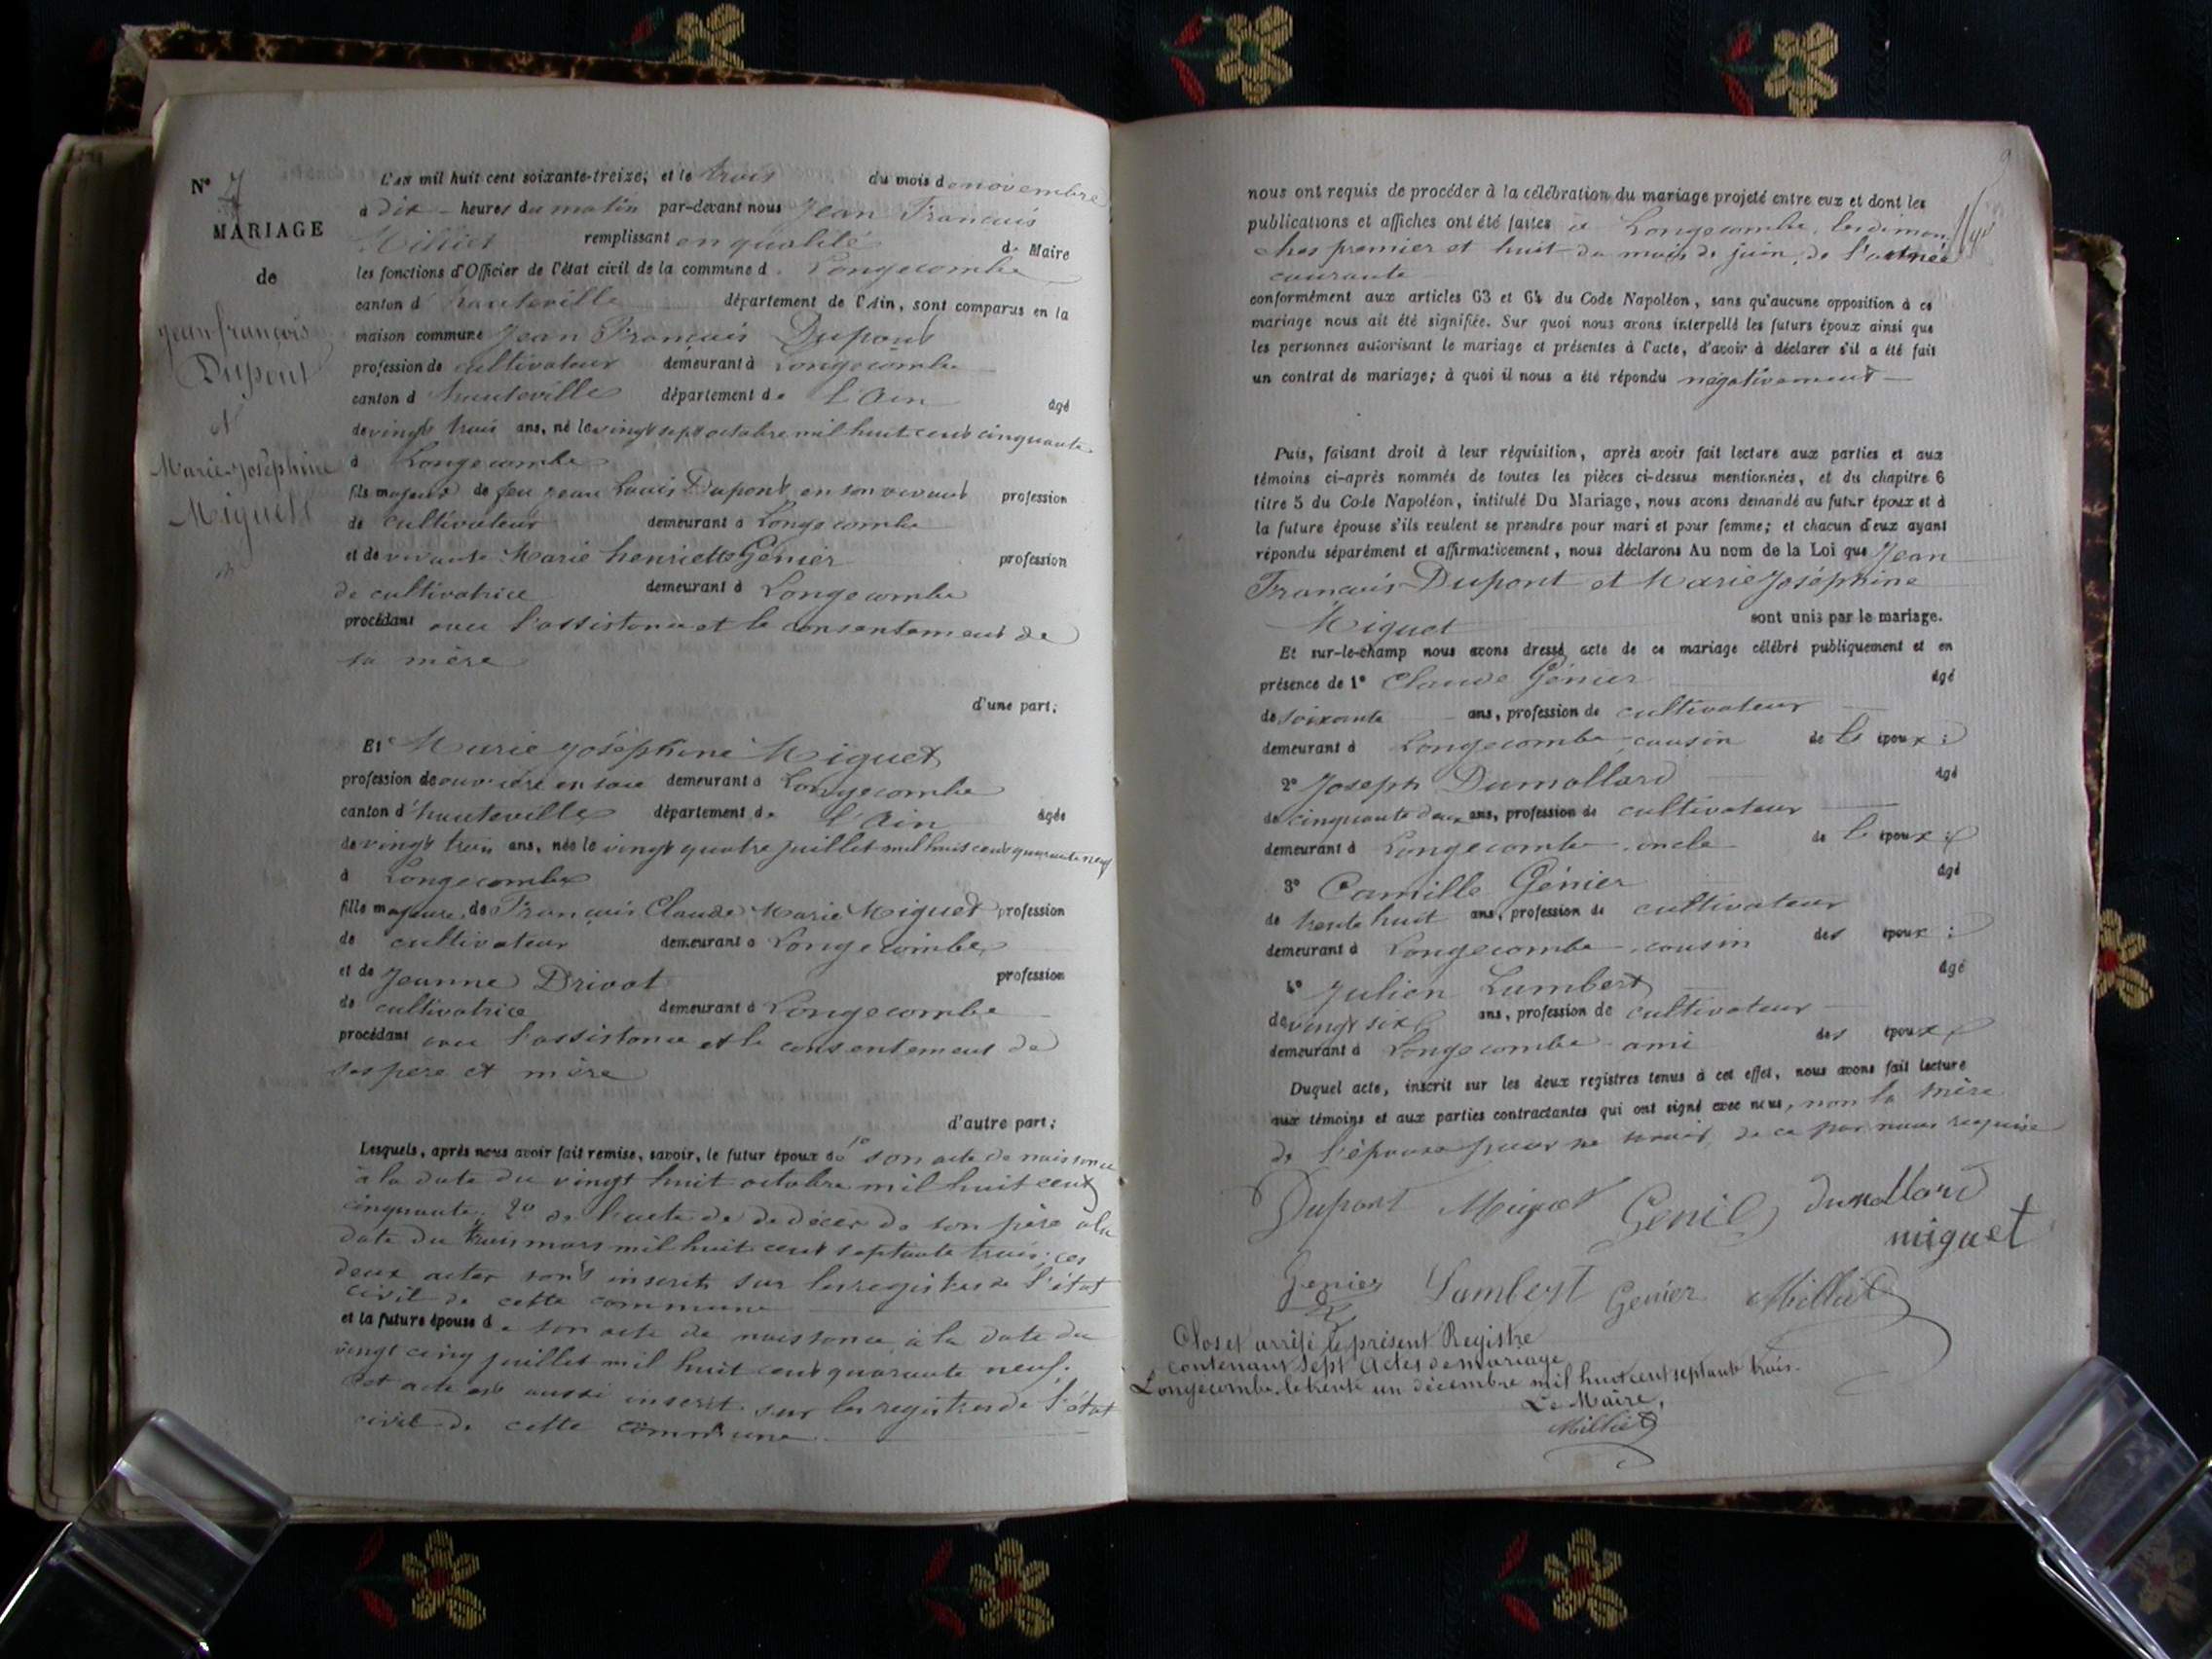 N° 7
MARIAGE
de
Jean françois
Dupont
et
Marie-Joséphine
Miguet
L'an mil huit cent soixante-treize; et le trois du mois de novembre
à dix heures du matin par-devant nous Jean François
Milliet remplissant en qualité de Maire
les fonctions d'Officier de l'état civil de la commune d Longecombe
canton d'hauteville département de l'Ain, sont comparus en la
maison commune Jean François Dupont
profession de cultivateur demeurant à Longecombe
canton d hauteville département de L'Ain âgé
de vingt trois ans, né le vingt sept octobre mil huit cent cinquante
à Longecombe
fils majeur de feu Jean Louis Dupont en son vivant profession
de cultivateur demeurant à Longecombe
et de vivante Marie henriette Génier profession
de cultivatrice demeurant à Longecombe
procédant avec l'assistance et le consentement de
sa mère
d'une part;
Et Marie Joséphine Miguet
profession de ouvrière en soie demeurant à Longecombe
canton d'hauteville département de L'Ain âgée
de vingt trois ans, née le vingt quatre juillet mil huit cent quarante neuf
à Longecombe
fille majeure de François Claude Marie Miguet profession
de cultivateur demeurant à Longecombe
et de Jeanne Drivot profession
de cultivatrice demeurant à Longecombe
procédant avec l'assistance et le consentement de
ses père et mère
d'autre part;
Lesquels, après nous avoir fait remise, savoir, le futur époux de 1° son acte de naissance
à la date du vingt huit octobre mil huit cent
cinquante; 2° de l'acte de de décès de son père à la
date du trois mars mil huit cent septante trois; ces
deux actes sont inscrits sur les registres de l'état
civil de cette commune
et la future épouse de son acte de naissance, à la date du
vingt cinq juillet mil huit cent quarante neuf;
cet acte est aussi inscrit sur les registres de l'état
civil de cette commune
9
nous ont requis de procéder à la célébration du mariage projeté entre eux et dont les
publications et affiches ont été faites à Longecombe, les diman
ches premier et huit du mois de juin, de l'année
courante
conformément aux articles 63 et 64 du Code Napoléon, sans qu'aucune opposition à ce
mariage nous ait été signifiée. Sur quoi nous avons interpellé les futurs époux ainsi que
les personnes autorisant le mariage et présentes à l'acte, d'avoir à déclarer s'il a été fait
un contrat de mariage; à quoi il nous a été répondu négativement
Puis, faisant droit à leur réquisition, après avoir fait lecture aux parties et aux
témoins ci-après nommés de toutes les pièces ci-dessus mentionnées, et du chapitre 6
titre 5 du Code Napoléon, intitulé Du Mariage, nous avons demandé au futur époux et à
la future épouse s'ils veulent se prendre pour mari et pour femme; et chacun d'eux ayant
répondu séparément et affirmativement, nous déclarons Au nom de la Loi que Jean
François Dupont et Marie Joséphine
Miguet sont unis par le mariage.
Et sur-le-champ nous avons dressé acte de ce mariage célébré publiquement et en
présence de 1° Claude Génier âgé
de soixante ans, profession de cultivateur
demeurant à Longecombe cousin de l' époux;
2° Joseph Dumollard âgé
de cinquante deux ans, profession de cultivateur
demeurant à Longecombe, oncle de l' époux;
3° Camille Génier âgé
de trente huit ans, profession de cultivateur
demeurant à Longecombe, cousin des époux;
4° Julien Lambert âgé
de vingt six ans, profession de cultivateur
demeurant à Longecombe ami des époux
Duquel acte, inscrit sur les deux registres tenus à cet effet, nous avons fait lecture
aux témoins et aux parties contractantes qui ont signé avec nous, non la mère
de l'épouse pour ne savoir, de ce par nous requise
Dupont Miguet Genier dumollard
miguet
Genier Lambert Genier Milliet
Clos et arrêté le présent Registre
contenant sept actes de mariage
Longecombe, le trente un décembre mil huit cent septante trois.
Le Maire,
Milliet